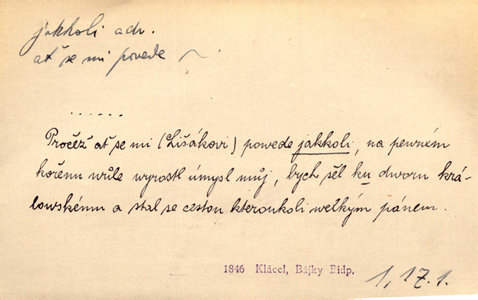 jakkoli adv.
ať se mi povede ~.
......
Pročež ať se mi (Lišákovi) powede jakkoli, na pewném
kořenu wůle wyrostl úmysl můj, bych šél ku dworu krá-
lowskému a stal se cestou kteroukoli welkým pánem.
1846 Klácel, Bájky Bidp.
1, 17. 1.